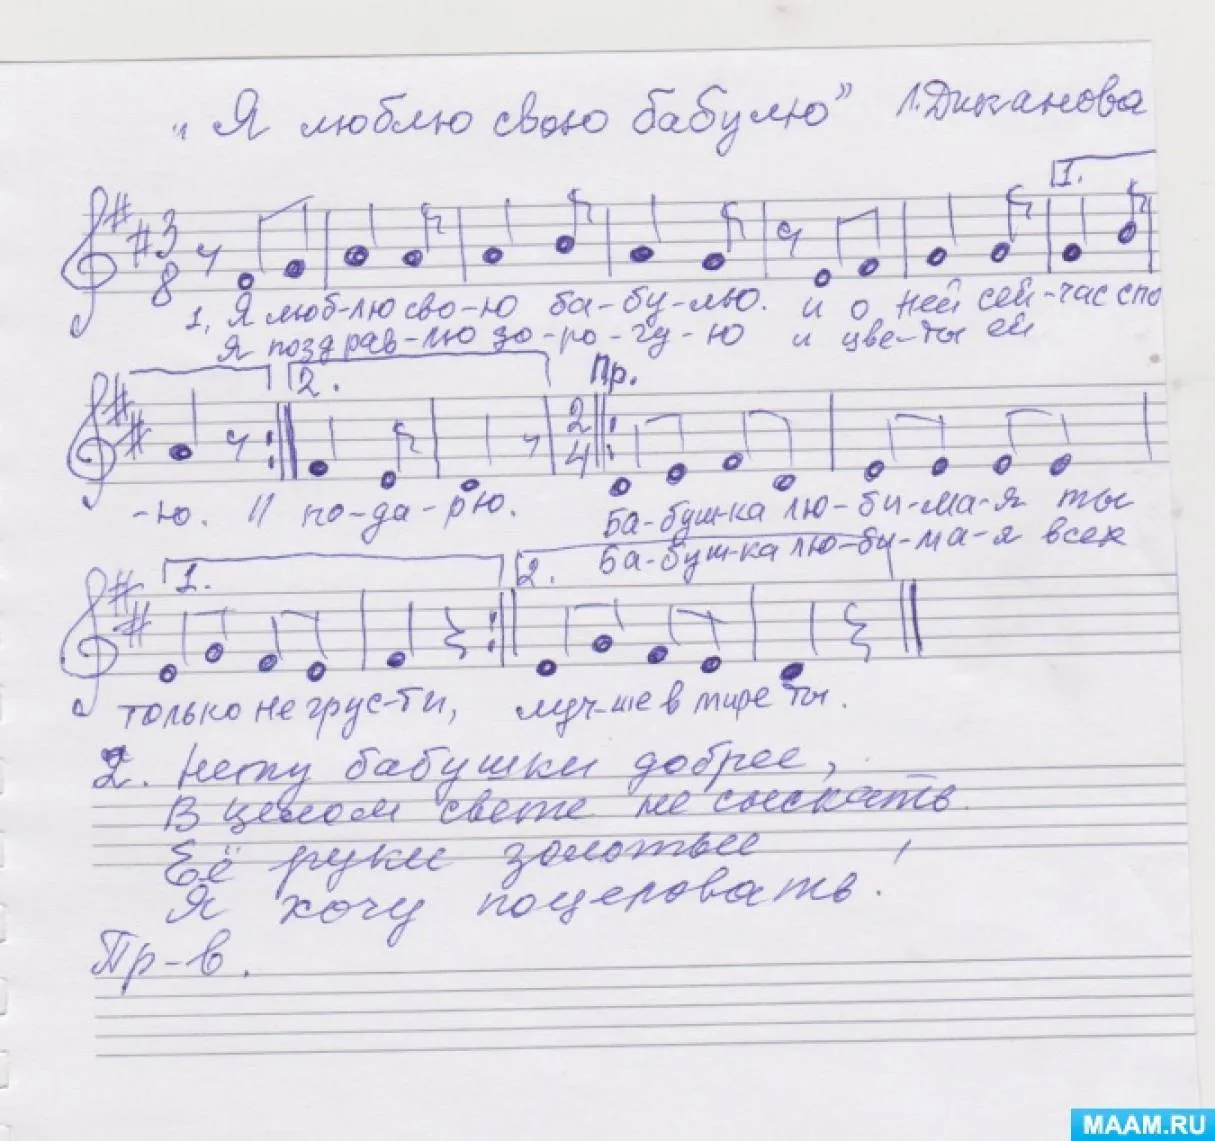 "Я люблю свою бабулю" Л. Дыганова
1.
3
8
1. Я люб-лю сво-ю ба-бу-лю. и о ней сей-час спо
Я поздрав-лю до-ро-гу-ю и цве-ты ей
2. Пр.
2
4
-ю. // по-да-рю. Ба-буш-ка лю-би-ма-я ты
Ба-буш-ка лю-би-ма-я всех
1. 2.
только не грус-ти, луч-ше в мире ты.
2. Нету бабушки добрее,
В целом свете не сыскать.
Её руки золотые,
Я хочу поцеловать.
Пр-в.
MAAM.RU